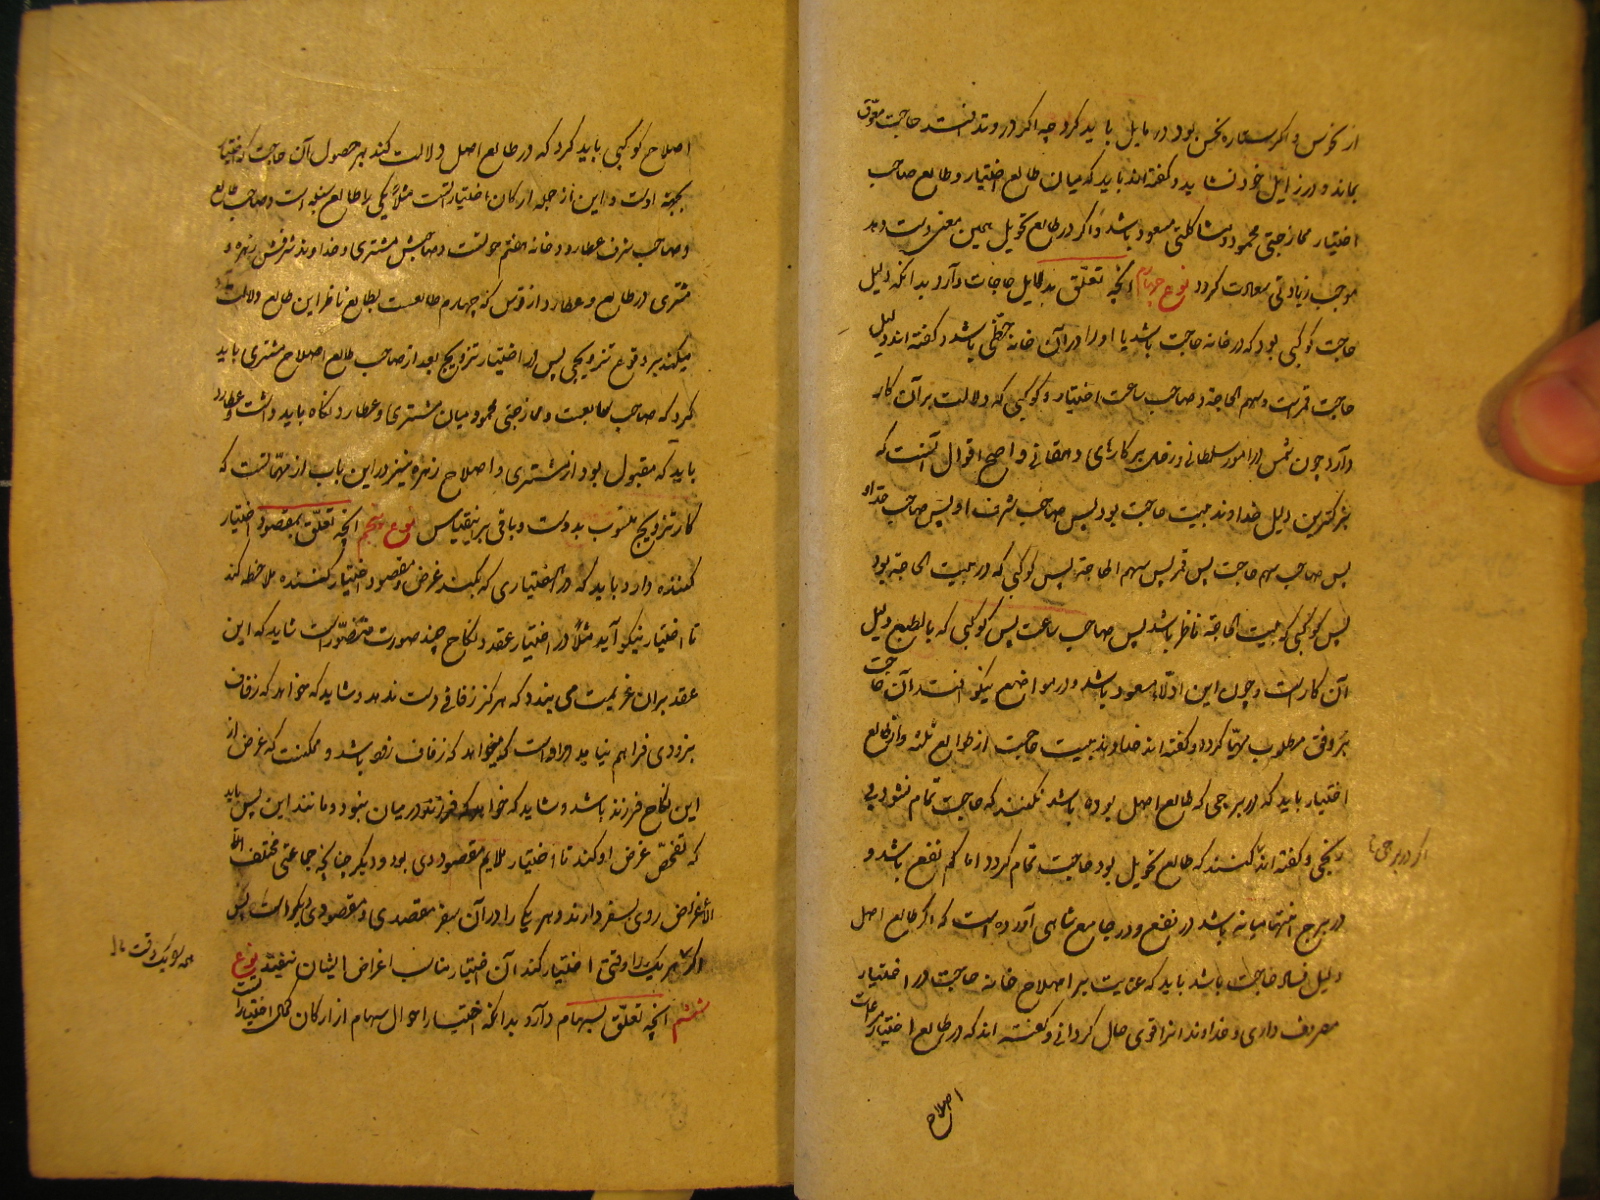 از نحوس و اگر ستاره نحس بود در مایل باید کرد چه اگر در وتد افتد حاجت معوق
بماند و در زایل خود نشاید و گفته‌اند باید که میان طالع اختیار و طالع صاحب
اختیار ممازجتی محمود و مشاکلتی مسعود باشد و اگر در طالع تحویل همین معنی دست دهد
موجب زیادتی سعادت گردد نوع چهارم آنچه تعلق بدلایل حاجات دارد بدانکه دلیل
حاجت کوکبی بود که در خانه حاجت باشد یا او را در آن خانه حظی باشد و گفته‌اند دلیل
حاجت قمر است و سهم الحاجة و صاحب ساعت اختیار و کوکبی که دلالت بر آن کار
دارد چون شمس در امور سلطانی و زحل بر کارهای دهقانی و اصح اقوال آنست که
بزرگترین دلیل خداوند بیت حاجت بود پس صاحب شرف او پس صاحب حد او
پس صاحب سهم حاجت پس قمر پس سهم الحاجة پس کوکبی که در بیت الحاجة بود
پس کوکبی که ببیت الحاجة ناظر باشد پس صاحب ساعت پس کوکبی که بالطبع دلیل
آن کار است و چون این ادلّه مسعود باشد و در مواضع نیکو افتد آن حاجت
بر وفق مطلوب مهیا گردد و گفته‌اند خداوند بیت حاجت از طوالع ثلثه و از طالع
اختیار باید که در برجی که طالع اصل بوده باشد نکنند که حاجت تمام نشود بی
رنجی و گفته‌اند اگر کنند که طالع تحویل بود حاجت تمام گردد اما کم نفع باشد و
در برج انتها میانه باشد در نفع و در جامع شاهی آورده است که اگر طالع اصل
دلیل فساد حاجت باشد باید که عنایت بر اصلاح خانه حاجت در اختیار
مصروف داری و خداوند انرا قوی حال گردانی و گفته‌اند که در طالع اختیار مراعات
اصلاح
اگر در برجی تا
اصلاح کوکبی باید کرد که در طالع اصل دلالت کند بر حصول آن حاجت که اختیار
بجهة اوست و این از جمله ارکان اختیار است مثلا یکی را طالع سنبله است و صاحب طالع
و صاحب شرف عطارد و خانه هفتم حوتست و صاحبش مشتری و خداوند شرفش زهره و
مشتری در طالع و عطارد از قوس که چهارم طالعست بطالع ناظر این طالع دلالت
میکند بر وقوع تزویجی پس در اختیار تزویج بعد از صاحب طالع اصلاح مشتری باید
کرد که صاحب سابعست و ممازجتی محمود میان مشتری و عطارد نگاه باید داشت و عطارد
باید که مقبول بود از مشتری و اصلاح زهره نیز در این باب از مهماتست که
کار تزویج منسوب بدوست و باقی برینقیاس نوع پنجم آنچه تعلق بمقصود اختیار
کننده دارد باید که در اختیاری که بکنند غرض و مقصود اختیار کننده ملاحظه کند
تا اختیار نیکو آید مثلا در اختیار عقد و نکاح چند صورت متصوّر است شاید که این
عقد بر آن عزیمت می‌بندد که هرگز زفافی دست ندهد و شاید که خواهد که زفاف
بزودی فراهم نیاید و رواست که میخواهد که زفاف زود باشد و ممکنست که غرض از
این نکاح فرزند باشد و شاید که خواهد که فرزند در میان نبود و مانند این پس باید
که تفحّص غرض او کند تا اختیار ملایم مقصود وی بود و دیگر چنانچه جماعتی مختلف
الاغراض روی بسفر دارند و هر یکی را در آن سفر مقصدی و مقصودی دیگر است پس
اگر هر یک را وقتی اختیار کند آن اختیار مناسب اغراض ایشان نیفتد نوع
ششم آنچه تعلق بسهام دارد بدانکه اختیار احوال سهام از ارکان کلی اختیار است
همه بیک وقت